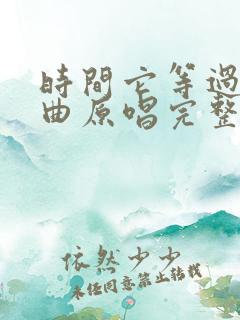 時間它等過
曲原唱完整
依然少少
未经同意禁止转载